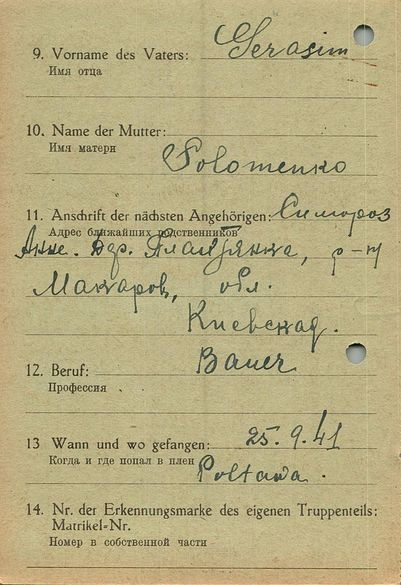 9. Vorname des Vaters: Gerasim
Имя отца
10. Name der Mutter:
Имя матери
Solomenko
11. Anschrift der nächsten Angehörigen: Симороз
Адрес ближайших родственников
Анне. Дер. р-н
Макаров, обл.
Киевская.
12. Beruf: Bauer
Профессия
13 Wann und wo gefangen: 25.9.41
Когда и где попал в плен Poltawa.
14. Nr. der Erkennungsmarke des eigenen Truppenteils:
Matrikel-Nr.
Номер в собственной части